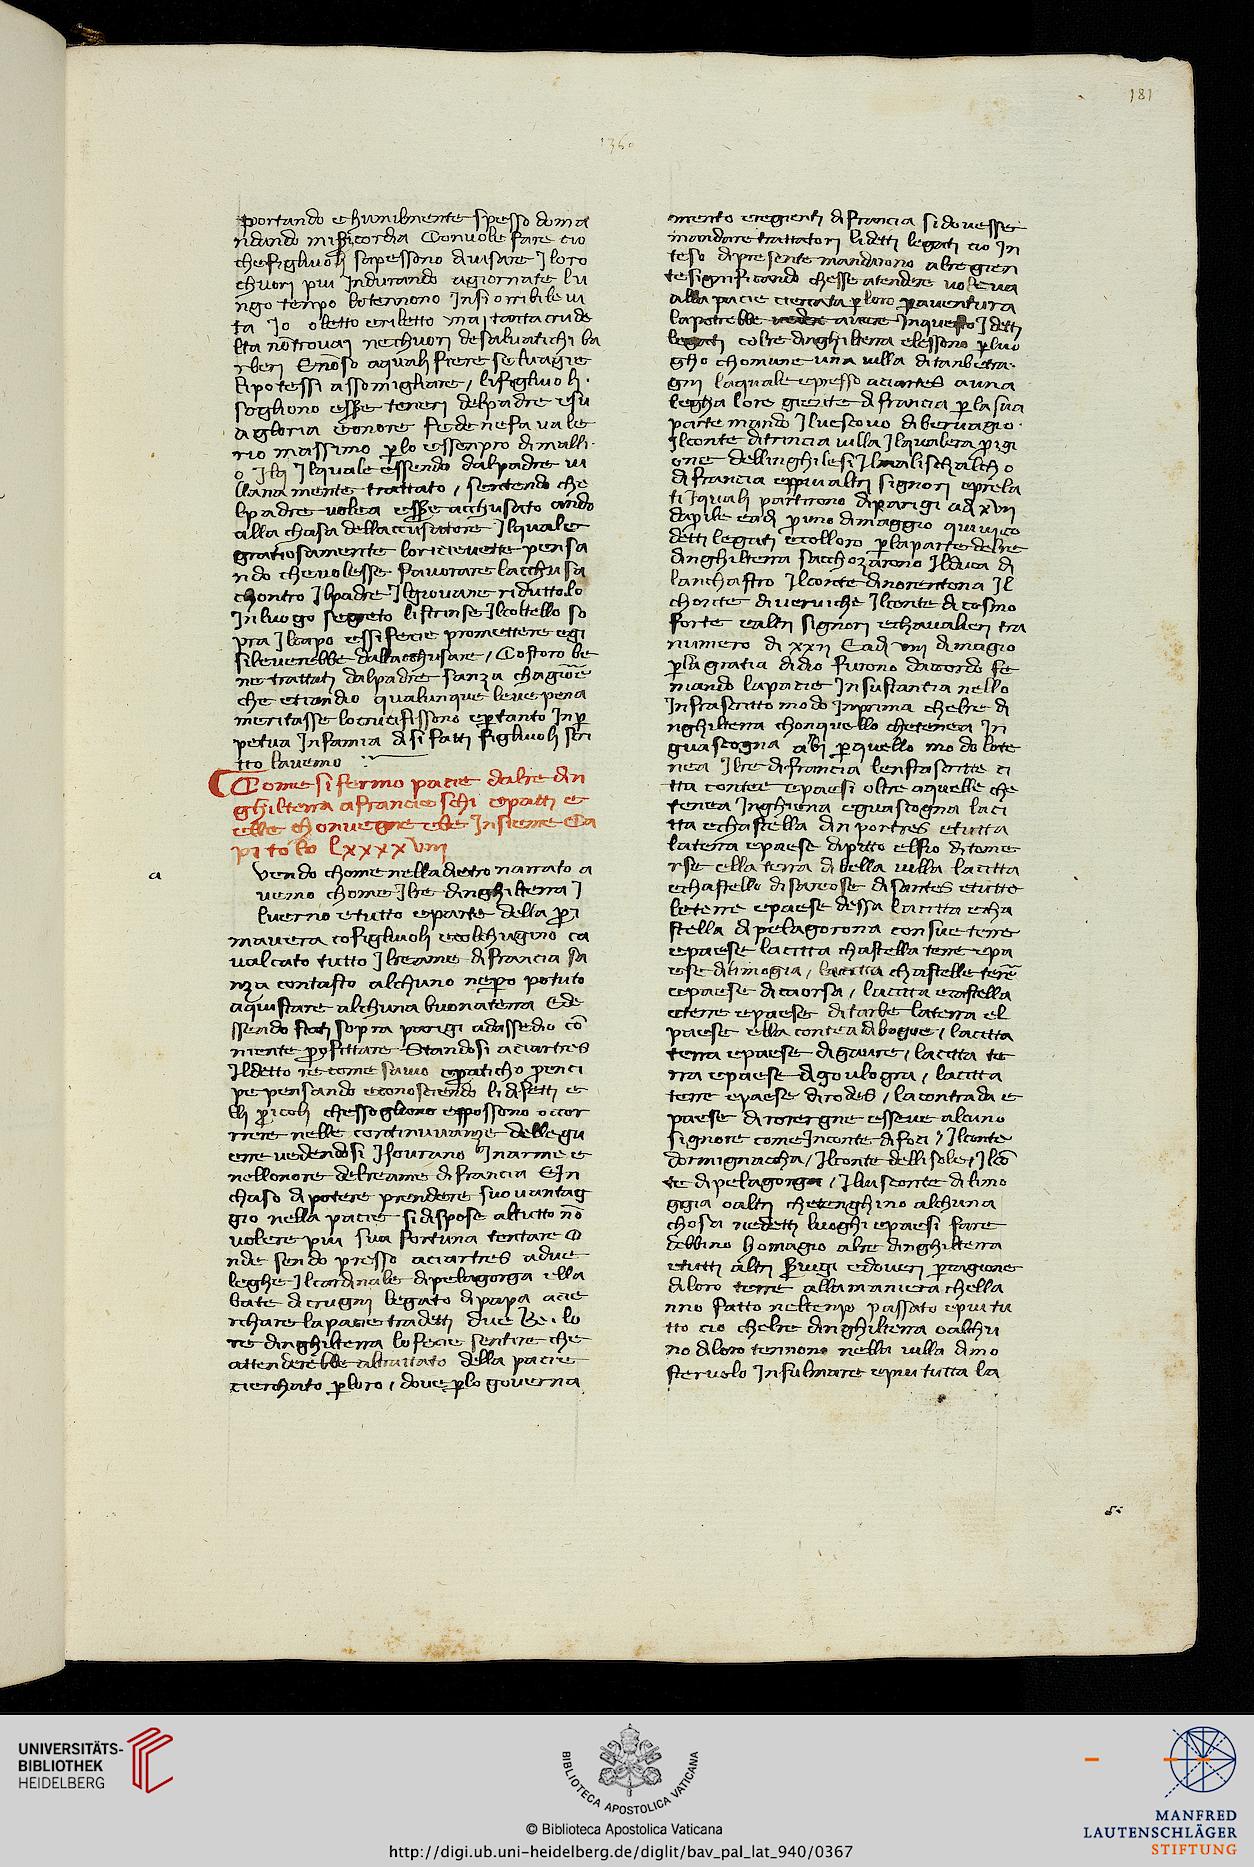 181
1360
portando e humilmente spesso doma
ndando misericordia Convole fare cio
che figliuoli sapessono divisare I loro
chuori piu Indurando agiornate lu
ngo tenpo lo tennono In si orribile vi
ta Jo o letto e riletto mai tanta crude
lta no trovai ne chuori de salvatichi ba
rberi Enoso a quali fiere se tuagie
si potessi assomigliare / li figliuoli
sogliono essere teneri del padre e su
a gloria e onore fede ne fa vale
rio massimo per lo essenpro di malli
o Ilquale essendo dal padre vi
llana mente trattato / sentendo che
l padre volea essere acchusato ando
alla chasa della cusatore Ilquale
gratiosamente lo ricievette pensa
ndo che volesse favorare lacchusa
chontro Il padre Il giovane riduttolo
In luogo segreto li strinse Il coltello so
pra Il capo essi fecie promettere egi
si leverebbe dallacchusare / Costoro be
ne trattati dal padre sanza chagione
che etiandio qualunque leve pena
meritasse lo crucifissono e pertanto In per
petua Infamia di si fatti figliuoli scri
tto lavemo
Come si fermo pacie dalre din
ghilterra a francieschi e patti e
elle chonvegne ebe Insieme Ca
pitolo LXXXXVIII
a
vendo chome nella dietro narrato a
vemo chome Ilre dinghilterra I
lverno e tutto e parte della pri
mavera co figliuoli e col chugino ca
valcato tutto Il reame di francia sa
nza contasto alchuno ne pero potuto
aquistare alchuna buona terra Ede
ssendo stati sopra parigi adassedio co
niente profittare Standosi a ciartres
Il detto re come savio e praticho prenci
pe pensando e conosciendo li difetti e
lli pericoli che ssogliono e possono occor
rere nelle continuvanze delle gu
erre vedendosi Il sovrano In arme e
nellonore de reame di francia E In
chaso di potere prendere suo vantag
gio nella pacie si dispose al tutto no
volere piu sua fortuna tentare O
nde sendo presso a ciartres a due
leghe Il cardinale di pelagorga e lla
bate di crugni legato di papa a cie
rchare la pacie tra detti due Re. lo
re dinghilterra lo fecie sentire che
attenderebbe al trattato della pacie
cierchato per loro / dove per lo governa
mento e regienti di francia si dovesse
mandare trattatori li detti legati cio In
teso di presente mandarono al regien
te significando chesse atendere voleva
alla pacie ciercata per loro per aventura
la potrebbe avere In questo I detti
legati colre dinghilterra elessono per luo
gho chomune una villa di tanbetra
gni laquale e presso a ciartres a una
legha lo re giente di francia per la sua
parte mando Il vescovo di belvagio
Il conte di trincia villa Ilquale era prigi
one dellinghilesi Il malischalcho
di francia e piu altri signori e prela
ti I quali partirono di parigi a di XXVII
daprile e a di primo di maggio quivi co
detti legati e colloro per la parte delre
dinghilterra sacchozarono Il duca di
lanchastro Il conte di norentona Il
chonte di veruiche Il conte di cosmo
forte e altri signori e chavalieri tra
numero di XXII E a di VIII di magio
per la gratia di dio furono dacordo fe
rmando la pacie In sustantia nello
Infrascritto modo In prima che lre di
nghilterra chon quello che tenea In
guascogna abi per quello modo lo te
nea Ilre di francia le nfrascritte ci
tta contee e paesi oltre a quelle che
tenea Inghiena e guascogna la ci
tta e chastella din portres e tutta
la terra e paese di pitto el fio di tome
rse e lla terra di bella villa la citta
e chastello di sareose di santes e tutte
le terre e paese dessa la citta e cha
stella di pelagorona con sue terre
e paese la citta chastella terre e pa
ese di limogia / la citta chastelle terre
e paese di caorsa / la citta e castella
e terre e paese di tarbe la terra el
paese e lla contea di bogue / la citta
terra e paese di gaure / la citta te
rra e paese di goulogra / la citta
terre e paese di rodes / la contrada e
paese di roergne e sseve alcuno
signore come In conte di foci / Il conte
dormignaccha / Il conte dellisole / Il co
te di pelagorga / Il visconte di limo
ggia o altri che tenghino alchuna
chosa ne detti luoghi e paesi fare
debbino homagio alre dinghilterra
e tutti altri servigi e doveri per cagione
di loro terre alla maniera chella
nno fatto nel tenpo passato e piu tu
tto cio che lre dinghilterra o alchu
no di loro tennono nella villa di mo
stervolo In sul mare e piu tutta la
UNIVERSITÄTS-
BIBLIOTHEK
HEIDELBERG
BIBLIOTECA APOSTOLICA VATICANA
© Biblioteca Apostolica Vaticana
http://digi.ub.uni-heidelberg.de/diglit/bav_pal_lat_940/0367
MANFRED
LAUTENSCHLÄGER
STIFTUNG